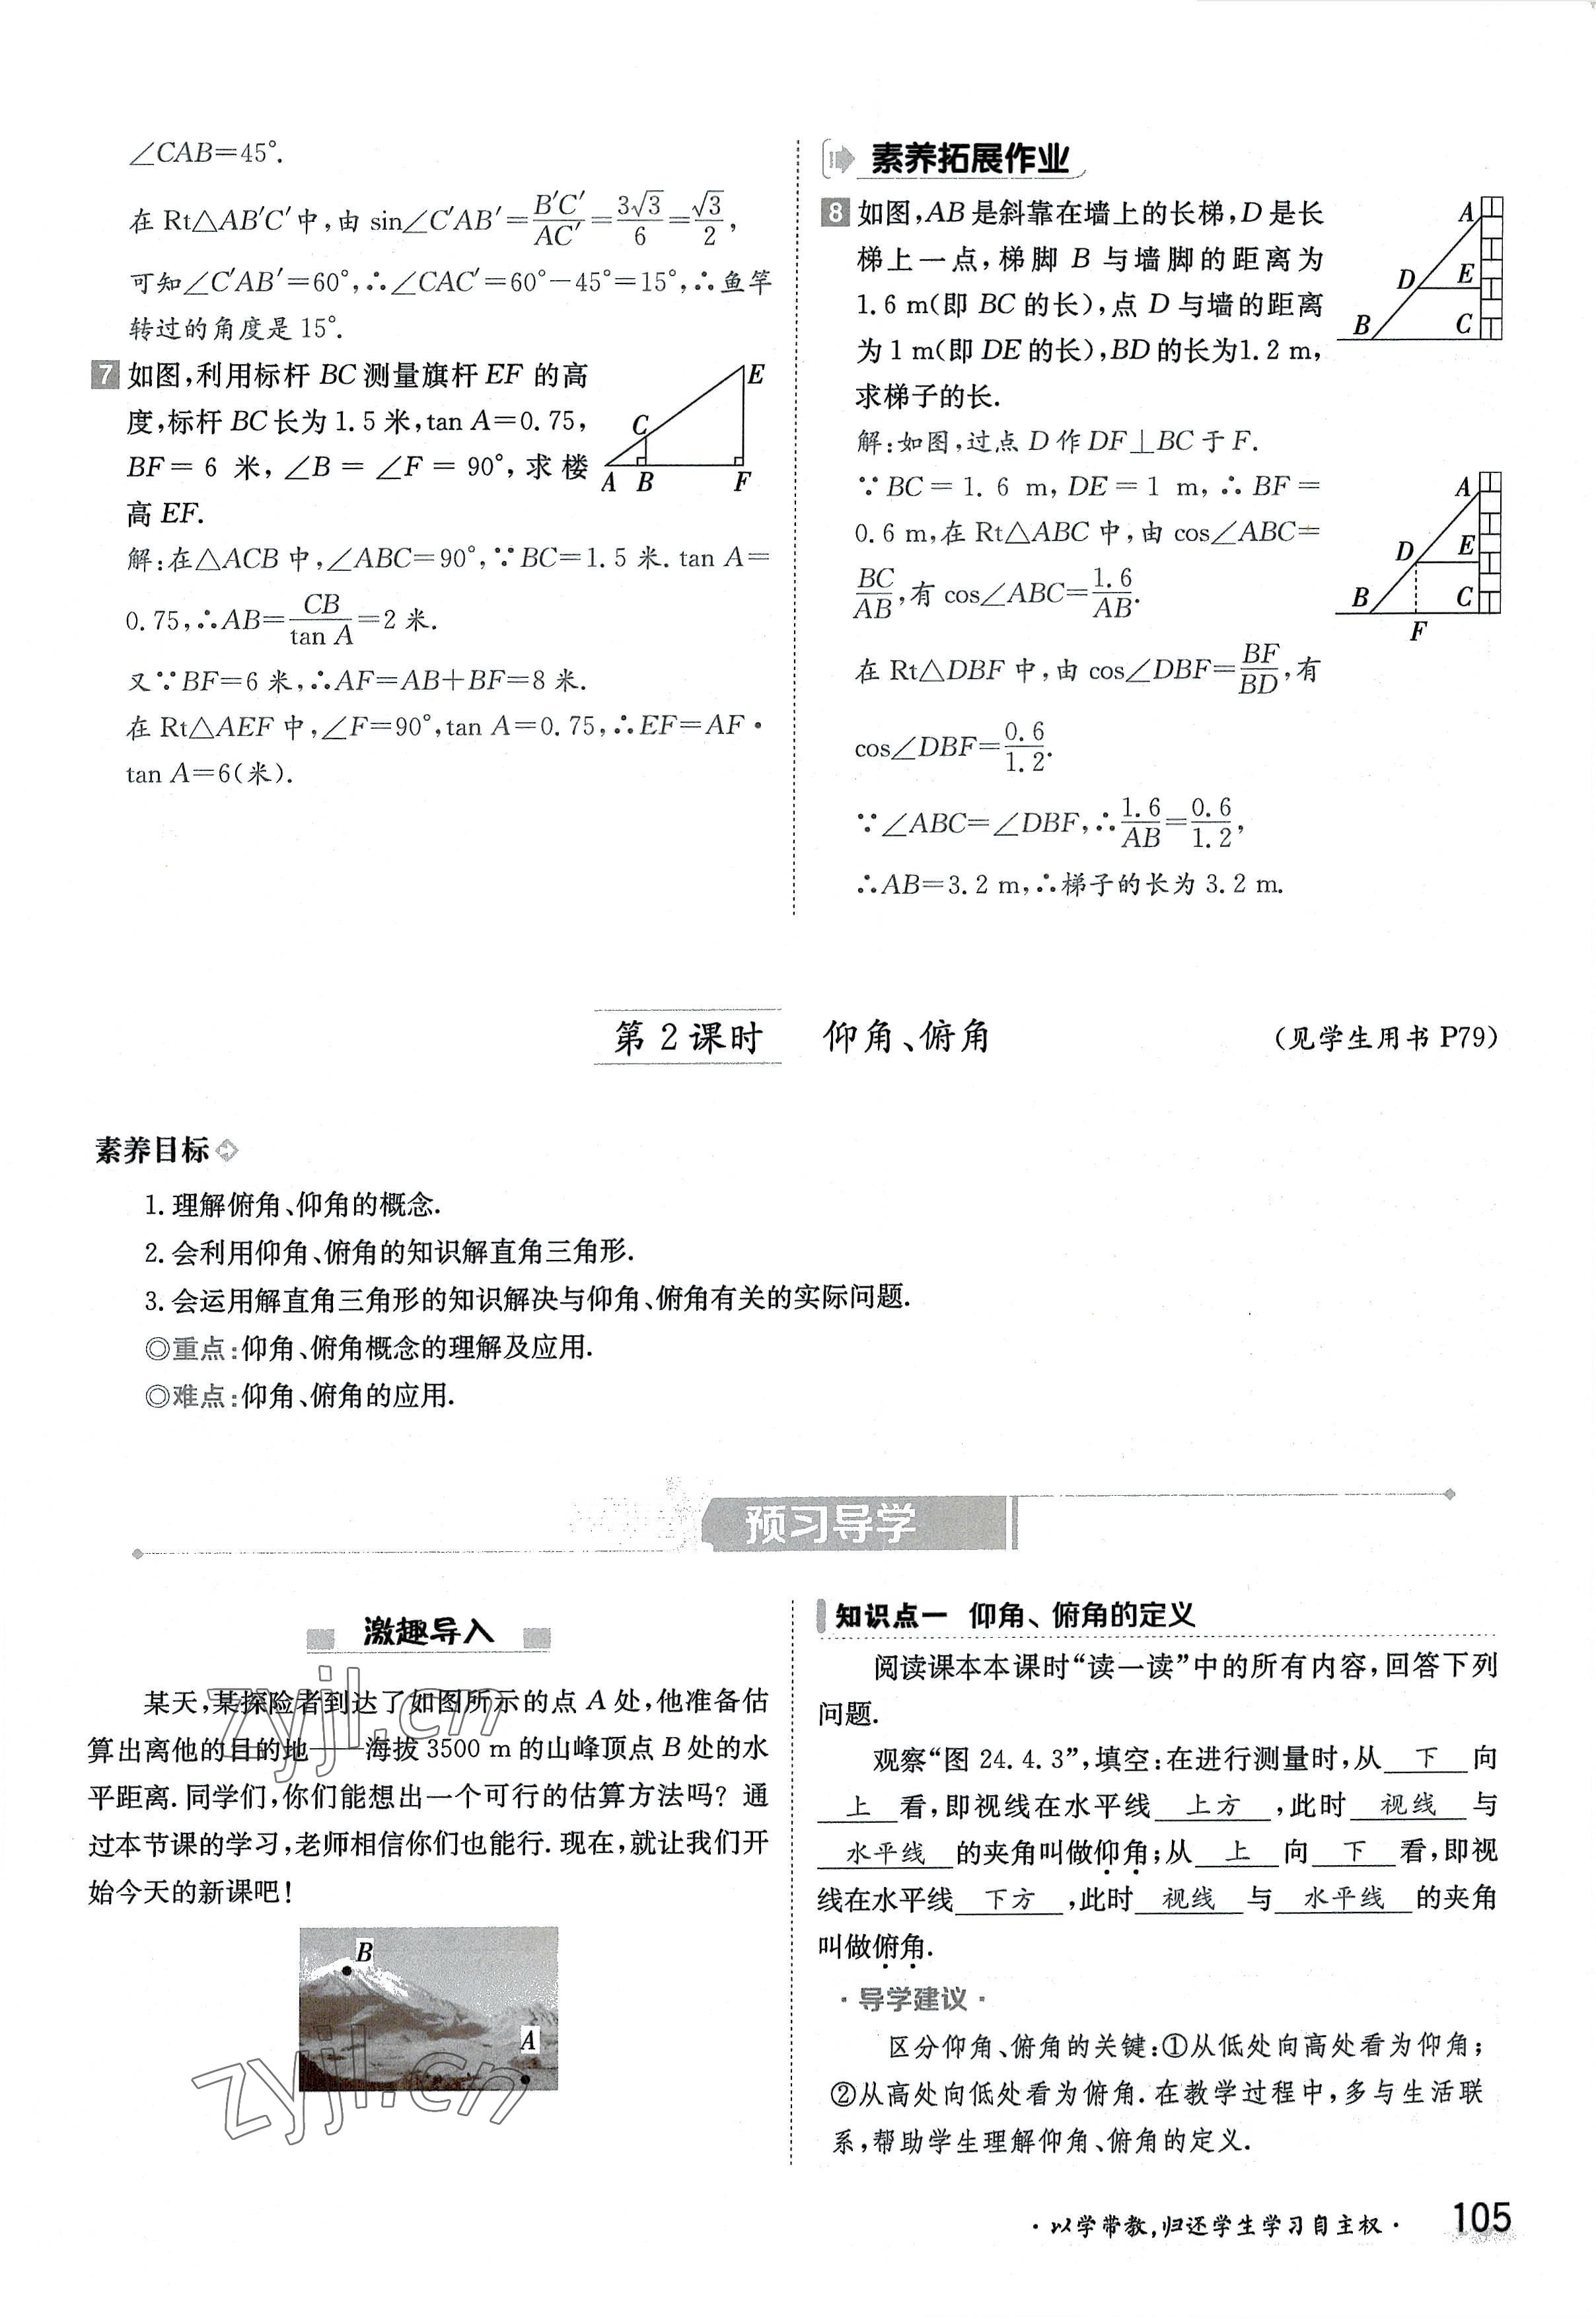 ∠CAB=45°.
在 Rt△AB′C′中,由 sin∠C′AB′=B′C′/AC′=3√3/6=√3/2,
可知∠C′AB′=60°,∴∠CAC′=60°−45°=15°,∴鱼竿
转过的角度是 15°.
7 如图,利用标杆 BC 测量旗杆 EF 的高
度,标杆 BC 长为 1.5 米,tan A=0.75,
BF=6 米,∠B=∠F=90°,求楼
高 EF.
E
C
A B F
解:在△ACB 中,∠ABC=90°,∵BC=1.5 米. tan A=
0.75,∴AB=CB/tan A=2 米.
又∵BF=6 米,∴AF=AB+BF=8 米.
在 Rt△AEF 中,∠F=90°,tan A=0.75,∴EF=AF·
tan A=6(米).
素养拓展作业
8 如图,AB 是斜靠在墙上的长梯,D 是长
梯上一点,梯脚 B 与墙脚的距离为
1.6 m(即 BC 的长),点 D 与墙的距离
为 1 m(即 DE 的长),BD 的长为1.2 m,
求梯子的长.
A
D E
B C
解:如图,过点 D 作 DF⊥BC 于 F.
∵BC=1.6 m,DE=1 m,∴BF=
0.6 m,在 Rt△ABC 中,由 cos∠ABC=
BC/AB,有 cos∠ABC=1.6/AB.
在 Rt△DBF 中,由 cos∠DBF=BF/BD,有
cos∠DBF=0.6/1.2.
∵∠ABC=∠DBF,∴1.6/AB=0.6/1.2,
∴AB=3.2 m,∴梯子的长为 3.2 m.
A
D E
B C
F
第 2 课时 仰角、俯角 (见学生用书 P79)
素养目标
1. 理解俯角、仰角的概念.
2. 会利用仰角、俯角的知识解直角三角形.
3. 会运用解直角三角形的知识解决与仰角、俯角有关的实际问题.
◎重点:仰角、俯角概念的理解及应用.
◎难点:仰角、俯角的应用.
预习导学
激趣导入
某天,某探险者到达了如图所示的点 A 处,他准备估
算出离他的目的地——海拔 3500 m 的山峰顶点 B 处的水
平距离. 同学们,你们能想出一个可行的估算方法吗? 通
过本节课的学习,老师相信你们也能行. 现在,就让我们开
始今天的新课吧!
B
A
zyjl.cn
zyjl.cn
知识点一 仰角、俯角的定义
阅读课本本课时“读一读”中的所有内容,回答下列
问题.
观察“图 24.4.3”,填空:在进行测量时,从 下 向
上 看,即视线在水平线 上方 ,此时 视线 与
水平线 的夹角叫做仰角;从 上 向 下 看,即视
线在水平线 下方 ,此时 视线 与 水平线 的夹角
叫做俯角.
·导学建议·
区分仰角、俯角的关键:①从低处向高处看为仰角;
②从高处向低处看为俯角. 在教学过程中,多与生活联
系,帮助学生理解仰角、俯角的定义.
·以学带教,归还学生学习自主权· 105